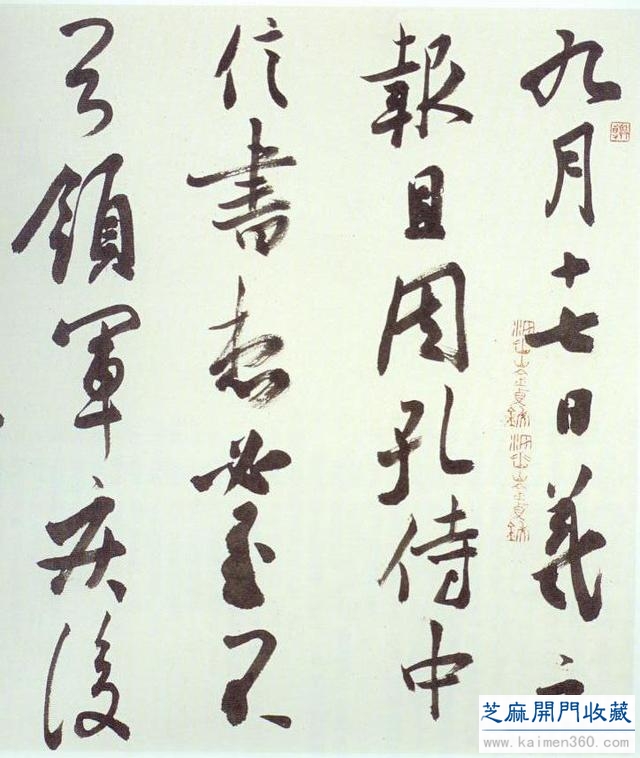 九月十七日羲之
報且因孔侍中
信書想必至不
知領軍疾後
芝麻開門收藏
www.kaimen360.com